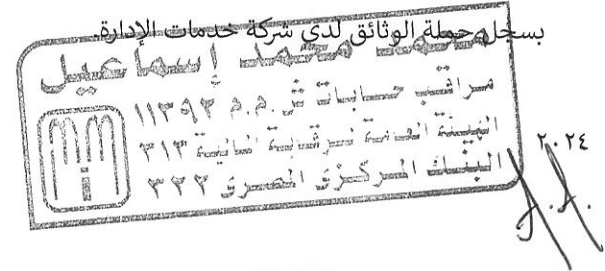 بسجل حملة الوثائق لدى شركة خدمات الإدارة.
محمد محمد إسماعيل
مراقب حسابات س.م.م ١١٣٩٢
الهيئة العامة للرقابة المالية ٣١٣
البنك المركزى المصرى ٣٢٢
٢٠٢٤